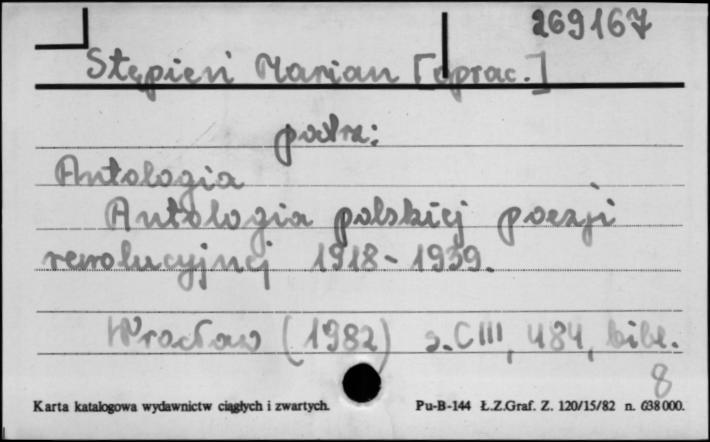 269167
Stępień Marian [oprac.]
patrz:
Antologia
Antologia polskiej poezji
rewolucyjnej 1918-1939.
Wrocław (1982) s. CIII, 484, bibl.
8
Karta katalogowa wydawnictw ciągłych i zwartych. Pu-B-144 Ł.Z.Graf. Z. 120/15/82 n. 638 000.